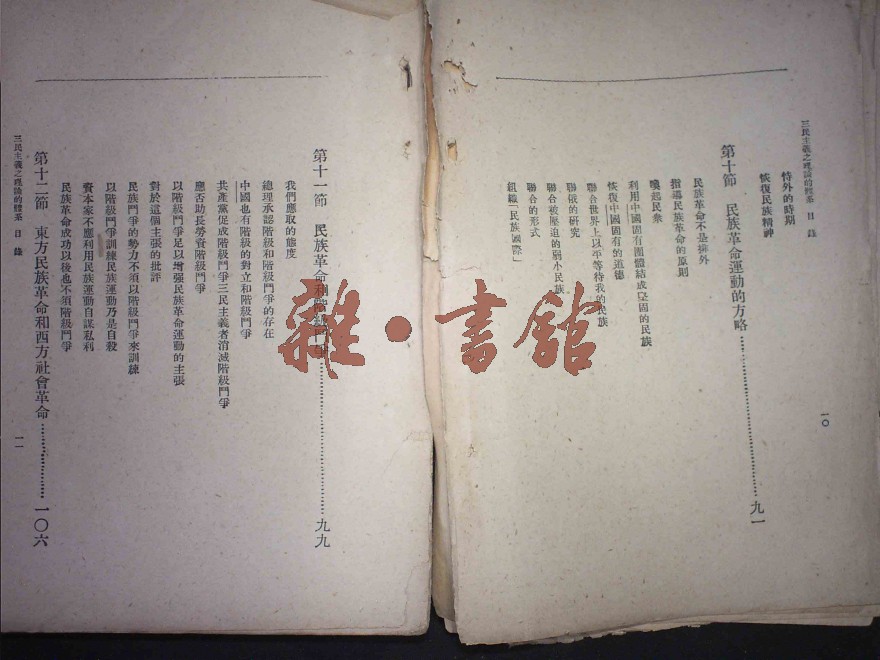 三民主義之理論的體系 目錄
恃外的時期
恢復民族精神
第十節 民族革命運動的方略……九一
民族革命不是排外
指導民族革命的原則
喚起民衆
利用中國固有團體結成堅固的民族
恢復中國固有的道德
聯合世界上以平等待我的民族
聯俄的研究
聯合被壓迫的弱小民族
聯合的形式
組織「民族國際」
一〇
第十一節 民族革命和階級鬥爭……九九
我們應取的態度
總理承認階級和階級鬥爭的存在
中國也有階級的對立和階級鬥爭
共產黨促成階級鬥爭三民主義者消滅階級鬥爭
應否助長勞資階級鬥爭
以階級鬥爭足以增强民族革命運動的主張
對於這個主張的批評
民族鬥爭的勢力不須以階級鬥爭來訓練
以階級鬥爭訓練民族運動乃是自殺
資本家不應利用民族運動自謀私利
民族革命成功以後也不須階級鬥爭
第十二節 東方民族革命和西方社會革命……一〇六
三民主義之理論的體系 目錄
一一
雜·書館